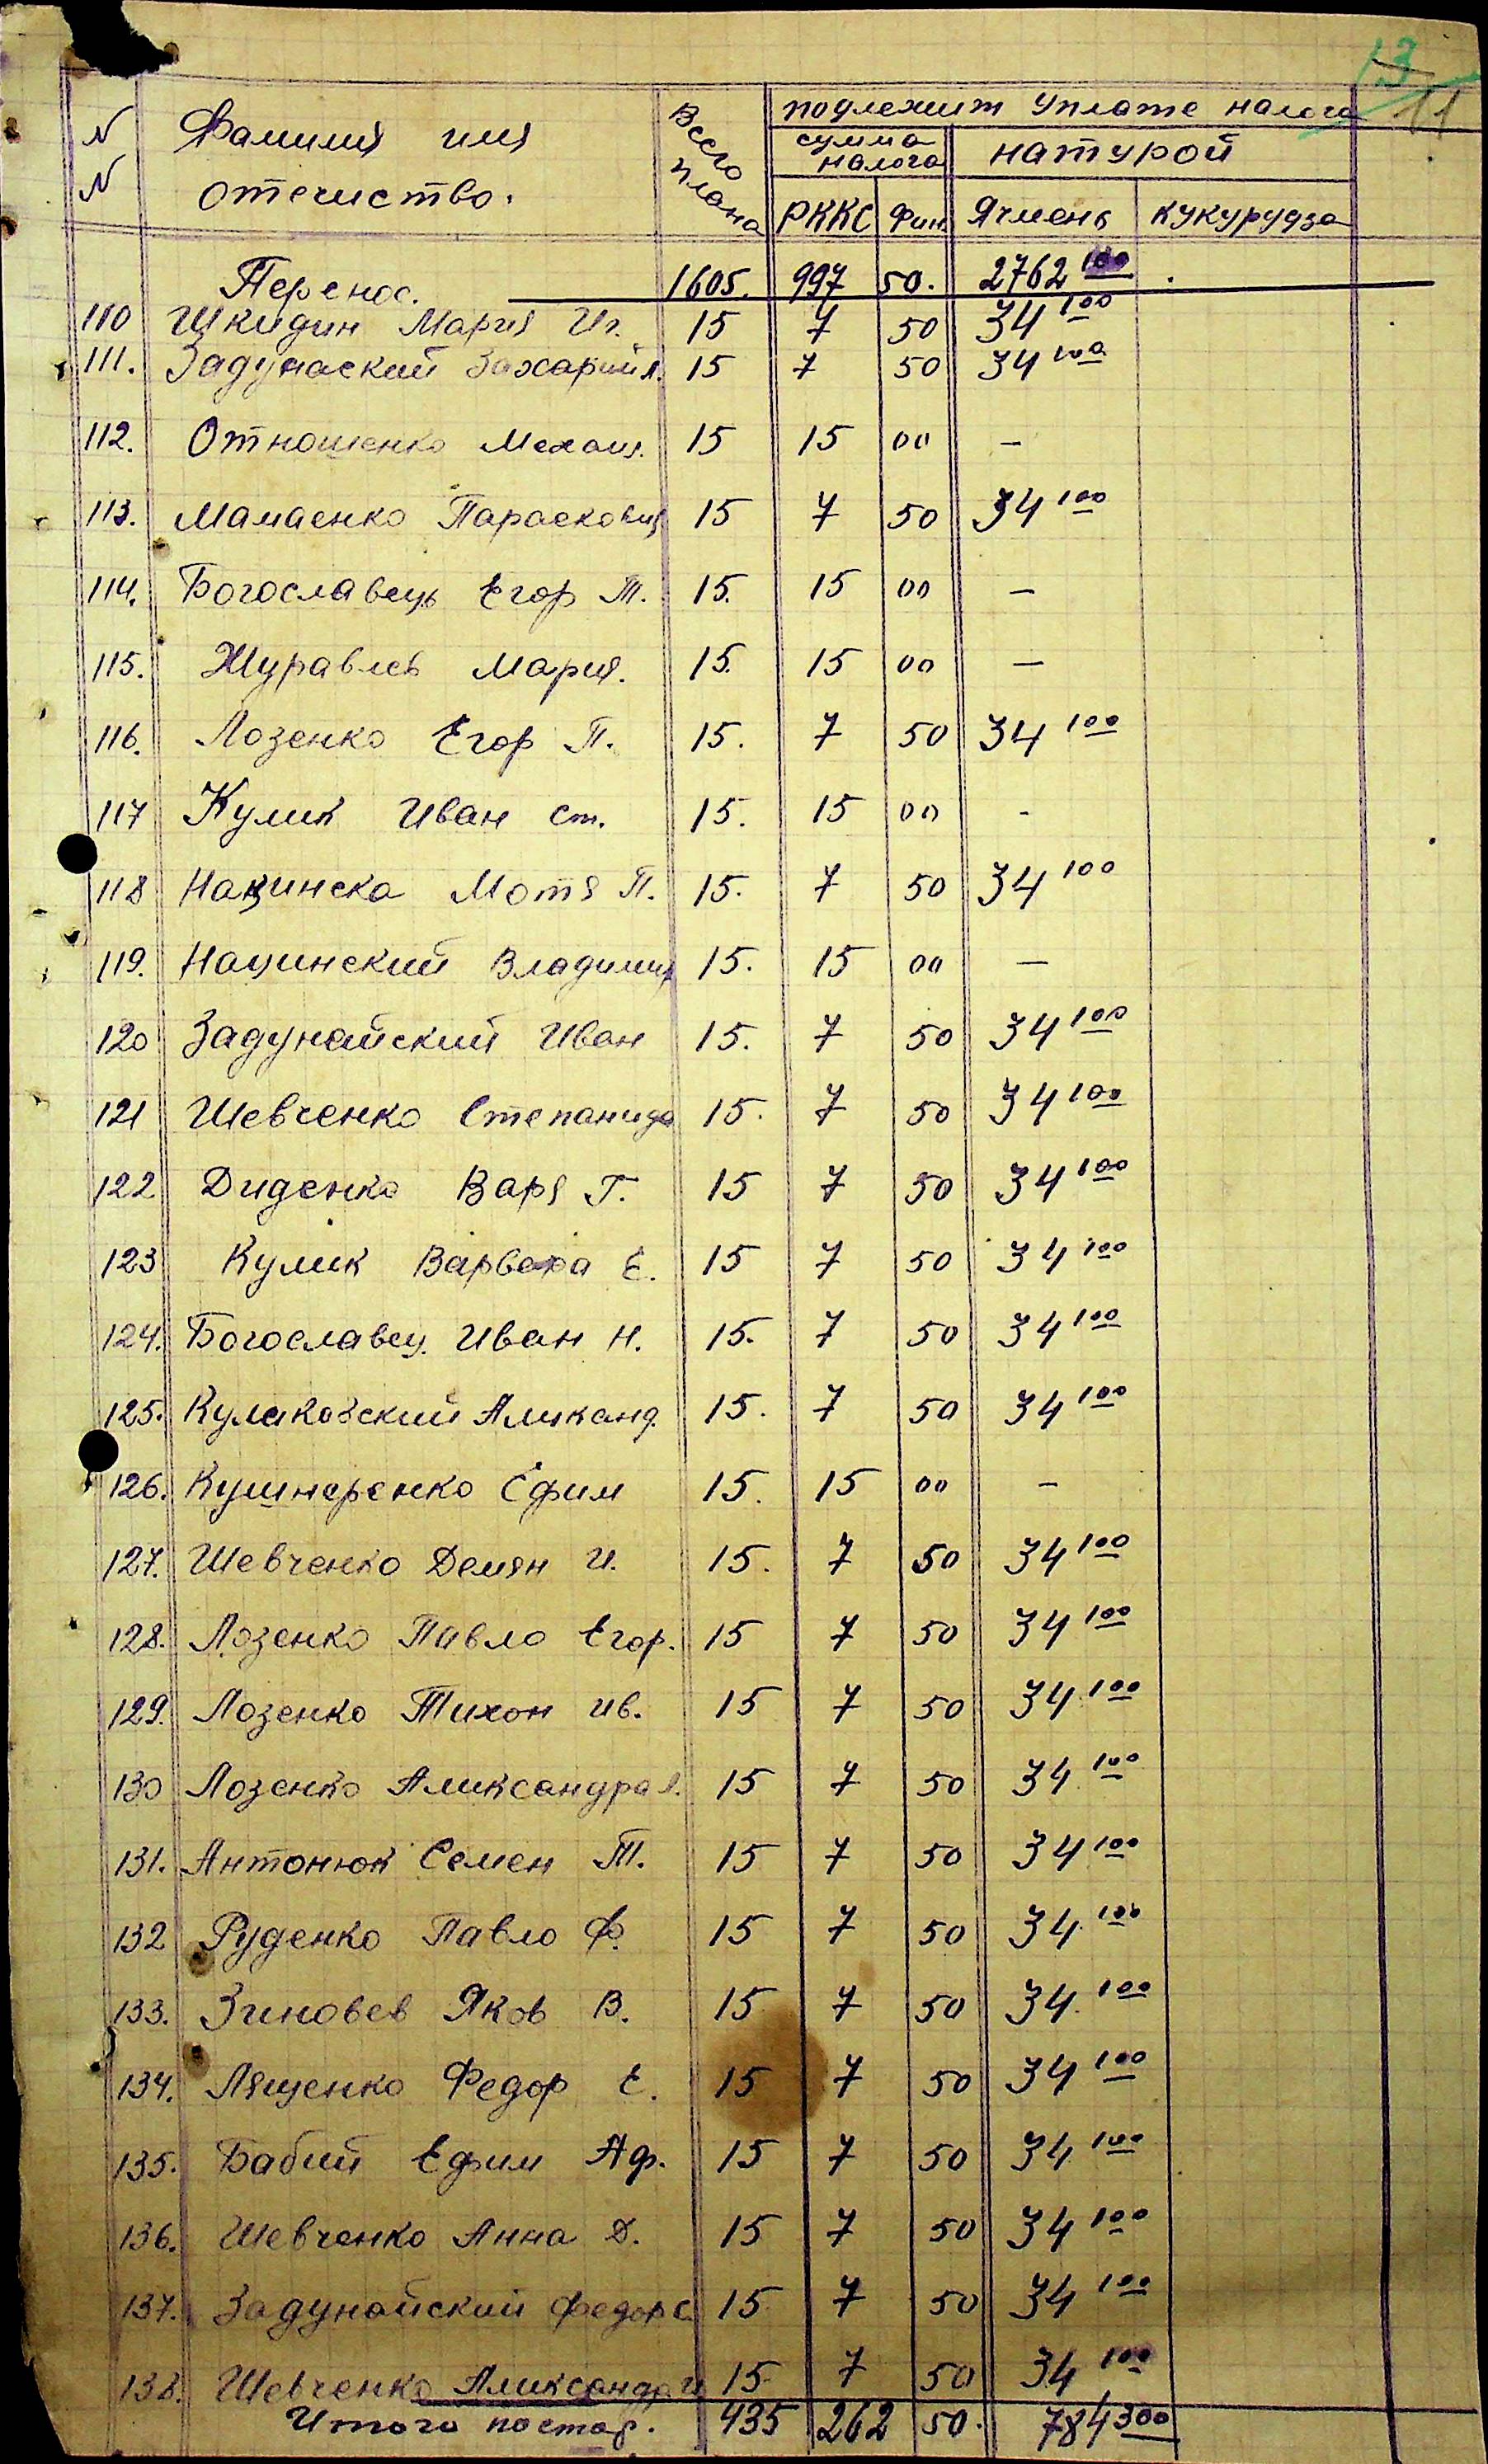 13
11
N N Фамилия имя отечиство. Всего плана подлежит уплате налога
сумма налога натурой
РККС Фин. Ячмень кукурудза
Перенос. 1605. 997 50. 2762 100
110 Шкидин Мария Иг. 15 7 50 34 100
111. Задунаский Захарий 15 7 50 34 100
112. Отношенко Механ. 15 15 00 –
113. Мамаенко Парасковия 15 7 50 34 100
114. Богославець Егор Т. 15. 15 00 –
115. Журавлев Мария. 15. 15 00 –
116. Лозенко Егор П. 15. 7 50 34 100
117 Кулик Иван Ст. 15. 15 00 -
118 Нацинска Мотя П. 15. 7 50 34 100
119. Нацинский Владимир 15. 15 00 –
120 Задунайский Иван 15. 7 50 34 100
121 Шевченко Степанида 15. 7 50 34 100
122 Диденко Варя Г. 15 7 50 34 100
123 Кулик Варвара Е. 15 7 50 34 100
124. Богославец. Иван Н. 15. 7 50 34 100
125. Кулаковский Аликанд. 15. 7 50 34 100
126. Кушнеренко Ефим 15. 15 00 –
127. Шевченко Демян И. 15. 7 50 34 100
128. Лозенко Павло Егор. 15 7 50 34 100
129. Лозенко Тихон Ив. 15 7 50 34 100
130 Лозенко Александра 15 7 50 34 100
131. Антонюк Семен Т. 15 7 50 34 100
132 Руденко Павло Ф. 15 7 50 34 100
133. Зиновев Яков В. 15 7 50 34 100
134. Лященко Федор Е. 15 7 50 34 100
135. Бабий Ефим Аф. 15 7 50 34 100
136. Шевченко Анна Д. 15 7 50 34 100
137. Задунайский Федор С. 15 7 50 34 100
138. Шевченко Александр И 15 7 50 34 100
Итого по стор. 435 262 50. 784 300